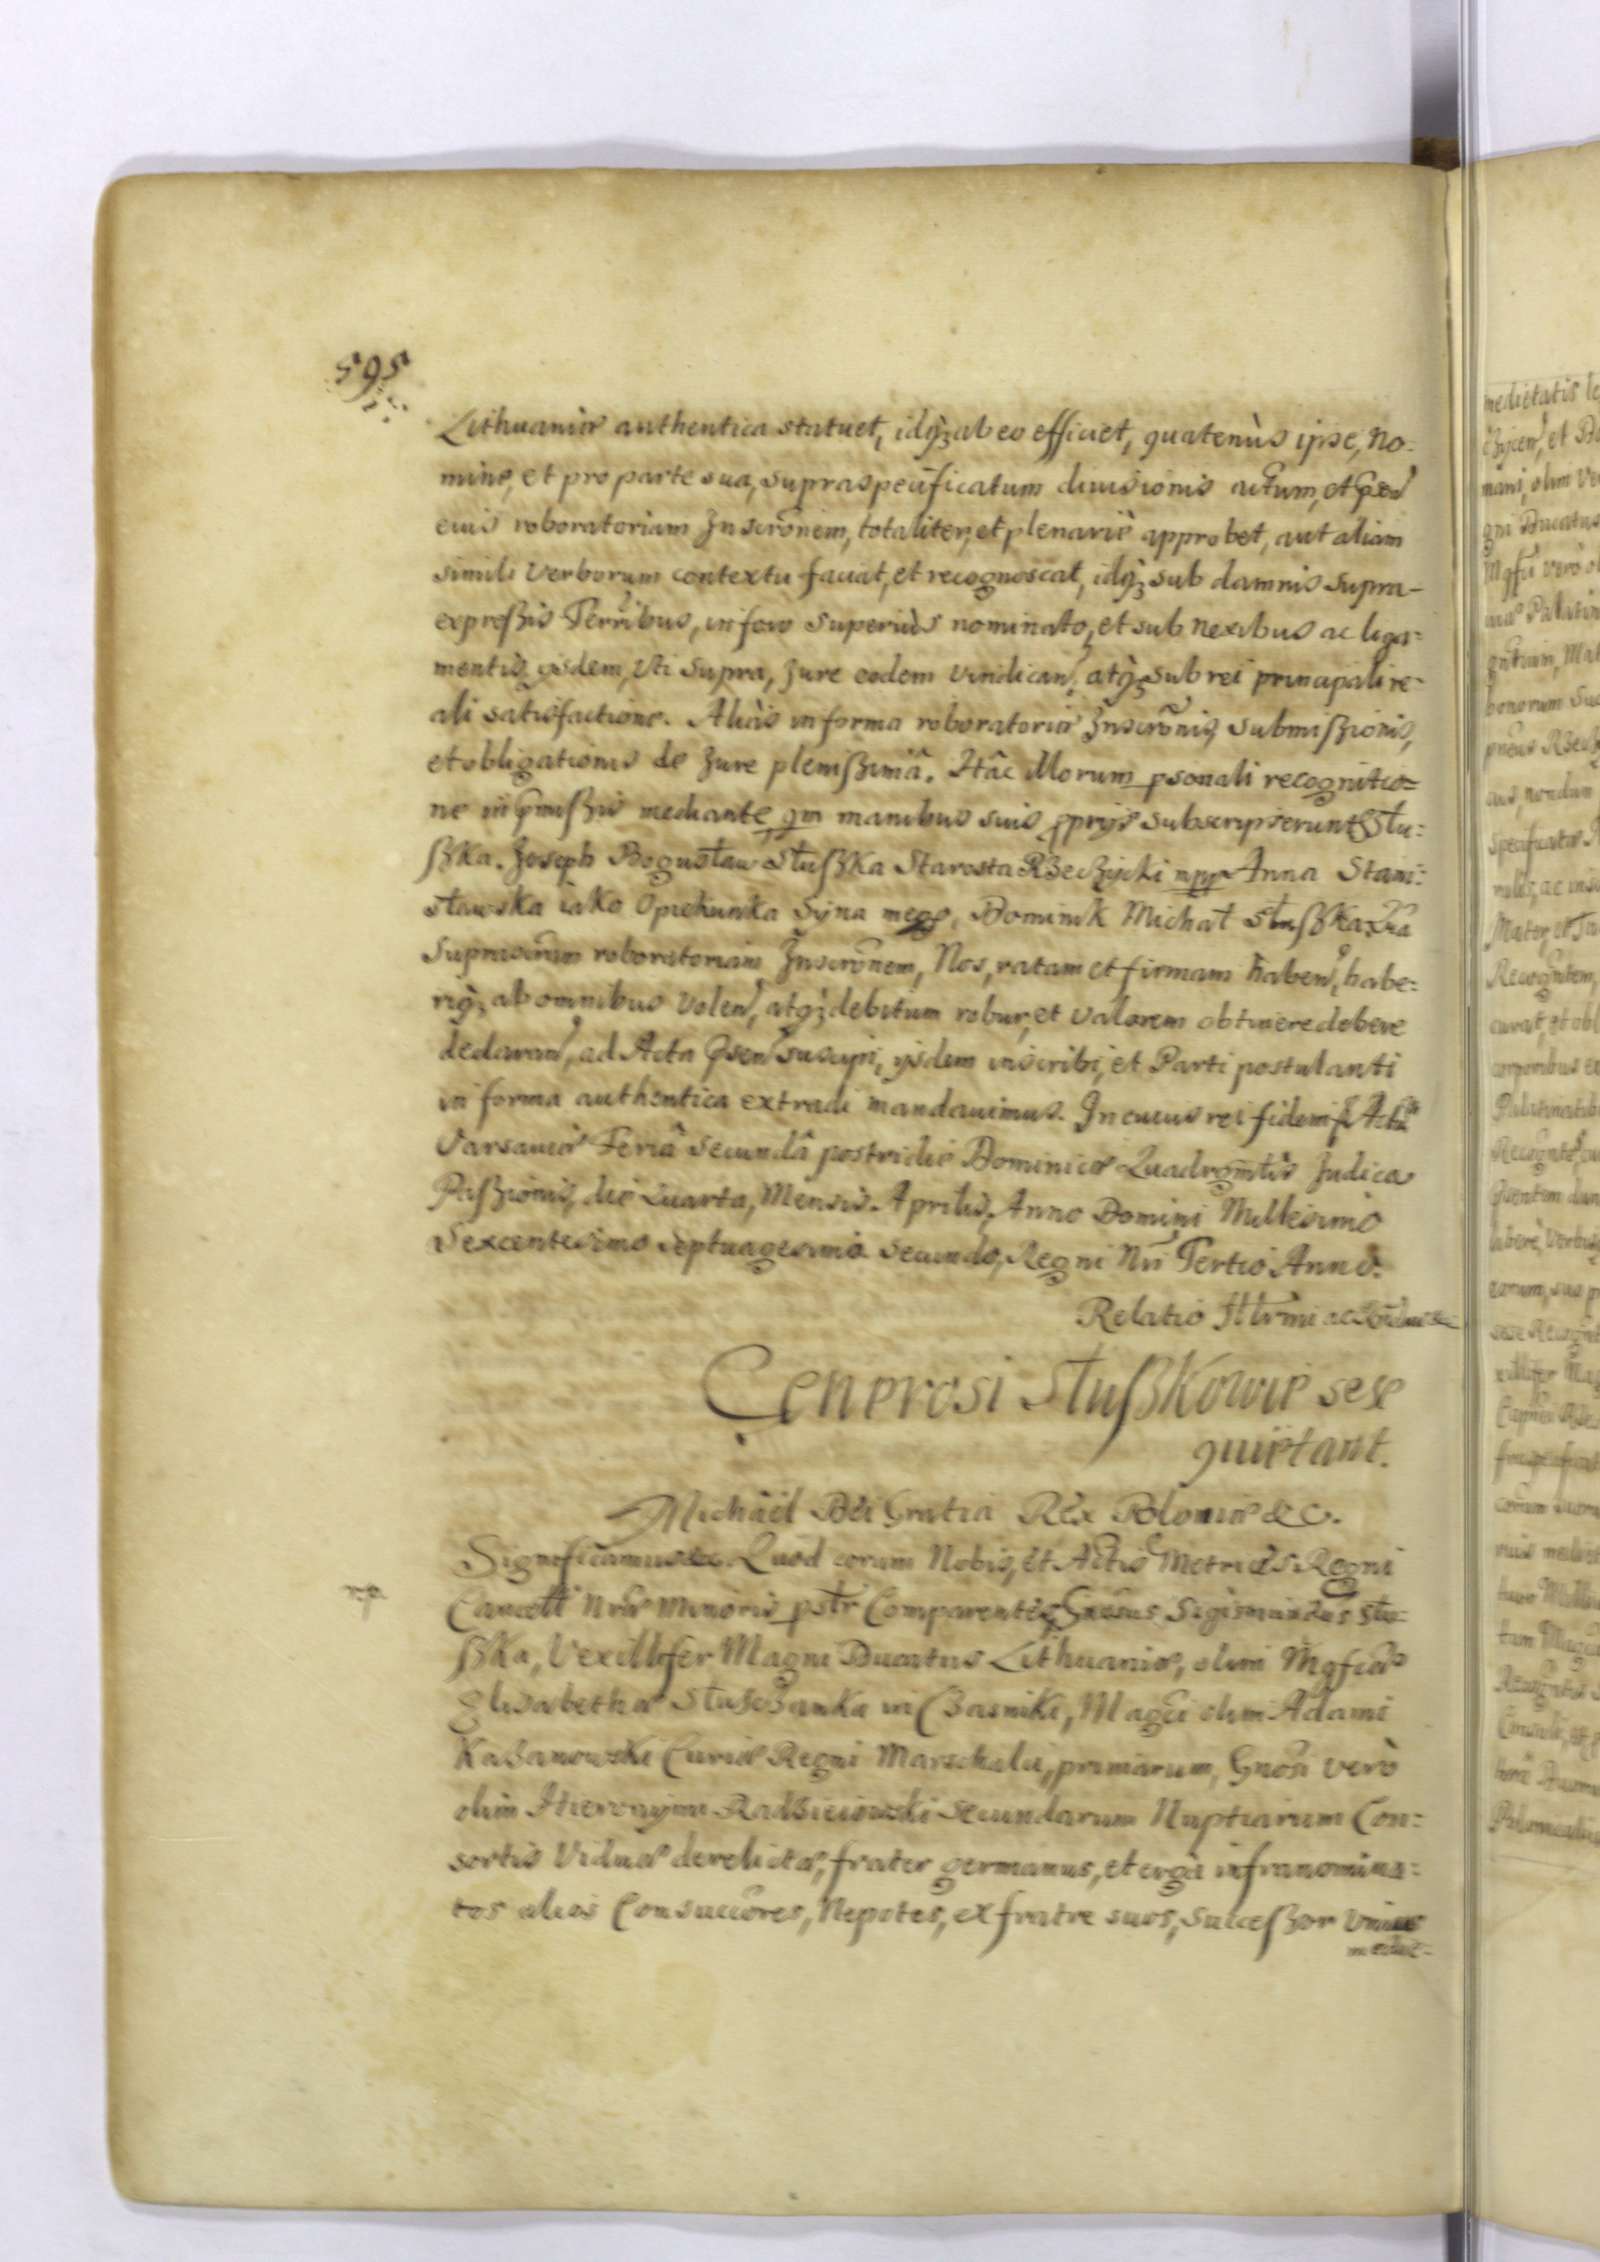 595
Lithuaniæ authentica statuet, idq̃ ab eo efficiet, quatenùs ipse, No:
mine, et pro parte sua, supraspecificatum diuisionis actum, et
eius roboratoriam Inscrõnem, totaliter, et plenariè approbet, aut aliam
simili verborum contextu faciat, et recognoscat, idq̃ sub damnis supra-
expreßis Terribus, in foro superiùs nominato, et sub nexibus ac liga:
mentis ijsdem, vti supra, Jure eodem vindican, atq̃ sub rei principali re:
ali satisfactione. Aliàs in forma roboratoriæ Inscrõnis, submißionis,
et obligationis de Jure plenißimâ. Hâc Illorum psonali recognitio=
ne in p̃mißis mediante qm manibus suis pprijs subscripserunt Słu:
ßka. Joseph Bogusław Słußka Starosta Rzeczycki mpp Anna Stani:
sławska iako Opiekunka Syna mego, Dominik Michał Słußka
Suprascrtam roboratoriam Inscrõnem, Nos, ratam et firmam haben, habe:
riq̃ ab omnibus volen, atq̃ debitum robur, et valorem obtinere debere
declaran, ad Acta p̃sen suscipi, ijsdem inscribi, et Parti postulanti
in forma authentica extradi mandauimus. In cuius rei fidem
Varsauiæ Feriâ secundâ postridie Dominicæ Quadrgmlis Judica
Paßionis, die Quarta, Mensis Aprilis, Anno Domini Millesimo
Sexcentesimo septuagesimo secundo, Regni Nri Tertio Anno.
Relatio Illrmi ac
Generosi Słußkowie sese
quietant.
Michäel Dei Gratia Rex Poloniæ &c.
Significamus &c. Quod coram Nobis, et Actis Metrices Regni
Cancell Nræ Minoris pstr Comparentes Gnosus Sigismundus Słu:
ßka, Vexillifer Magni Ducatus Lithuaniæ, olim Mgficæ
Elisabethæ Słuszczanka in Czasniki, Magci olim Adami
Kazanowski Curiæ Regni Marschalci, primarum, Gnosi verò
olim Hieronymi Radzieiowski secundarum Nuptiarum Con:
sortis Viduæ derelictæ, frater germanus, et ergà infranomina:
tos alios Consuccõres, Nepotes, ex fratre suos, Succeßor vnius